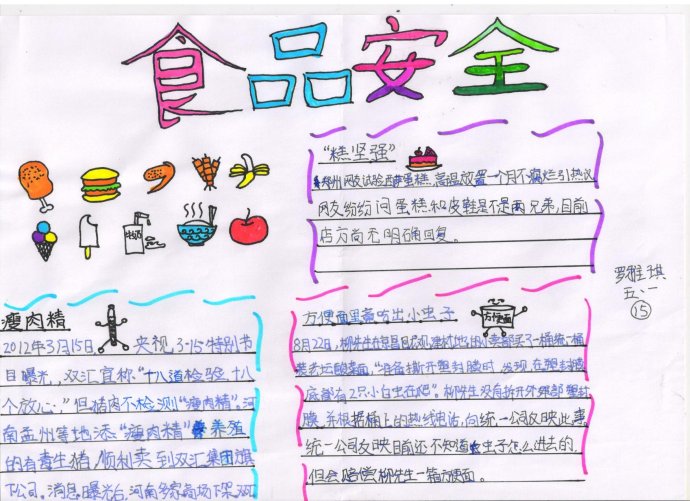 食品安全
"糕坚强"
郑州网友试验 蛋糕,高温放置一个月不腐烂引热议
网友纷纷问蛋糕和皮鞋是不是两兄弟,目前
店方尚无明确回复。
牛奶
罗雅琪
五、一
15
瘦肉精
2012年3月15日,央视3·15特别节
目曝光,双汇宣称"十八道检验、十八
个放心",但猪肉不检测"瘦肉精"。河
南孟州等地添"瘦肉精"养殖
的有毒生猪,顺利卖到双汇集团旗
下公司。消息曝光后,河南多家商场下架双
方便面里 吃出小虫子
方便面
8月22日,柳先生在 小卖部买了一桶统一桶
装老坛酸菜面,"准备撕开塑封膜时,发现在塑封膜
底部有2只小白虫在爬"。柳先生没有拆开外部塑封
膜,并根据桶上的热线电话,向统一公司反映此事,
统一公司反映目前还不知道虫子怎么进去的,
但会赔偿柳先生一箱方便面。